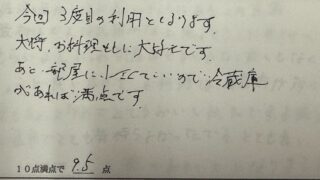 今回3度目の利用となります。
大将、お料理ともに大好きです。
あと部屋に小さくていいので冷蔵庫
があれば満点です。
10点満点で 9.5 点